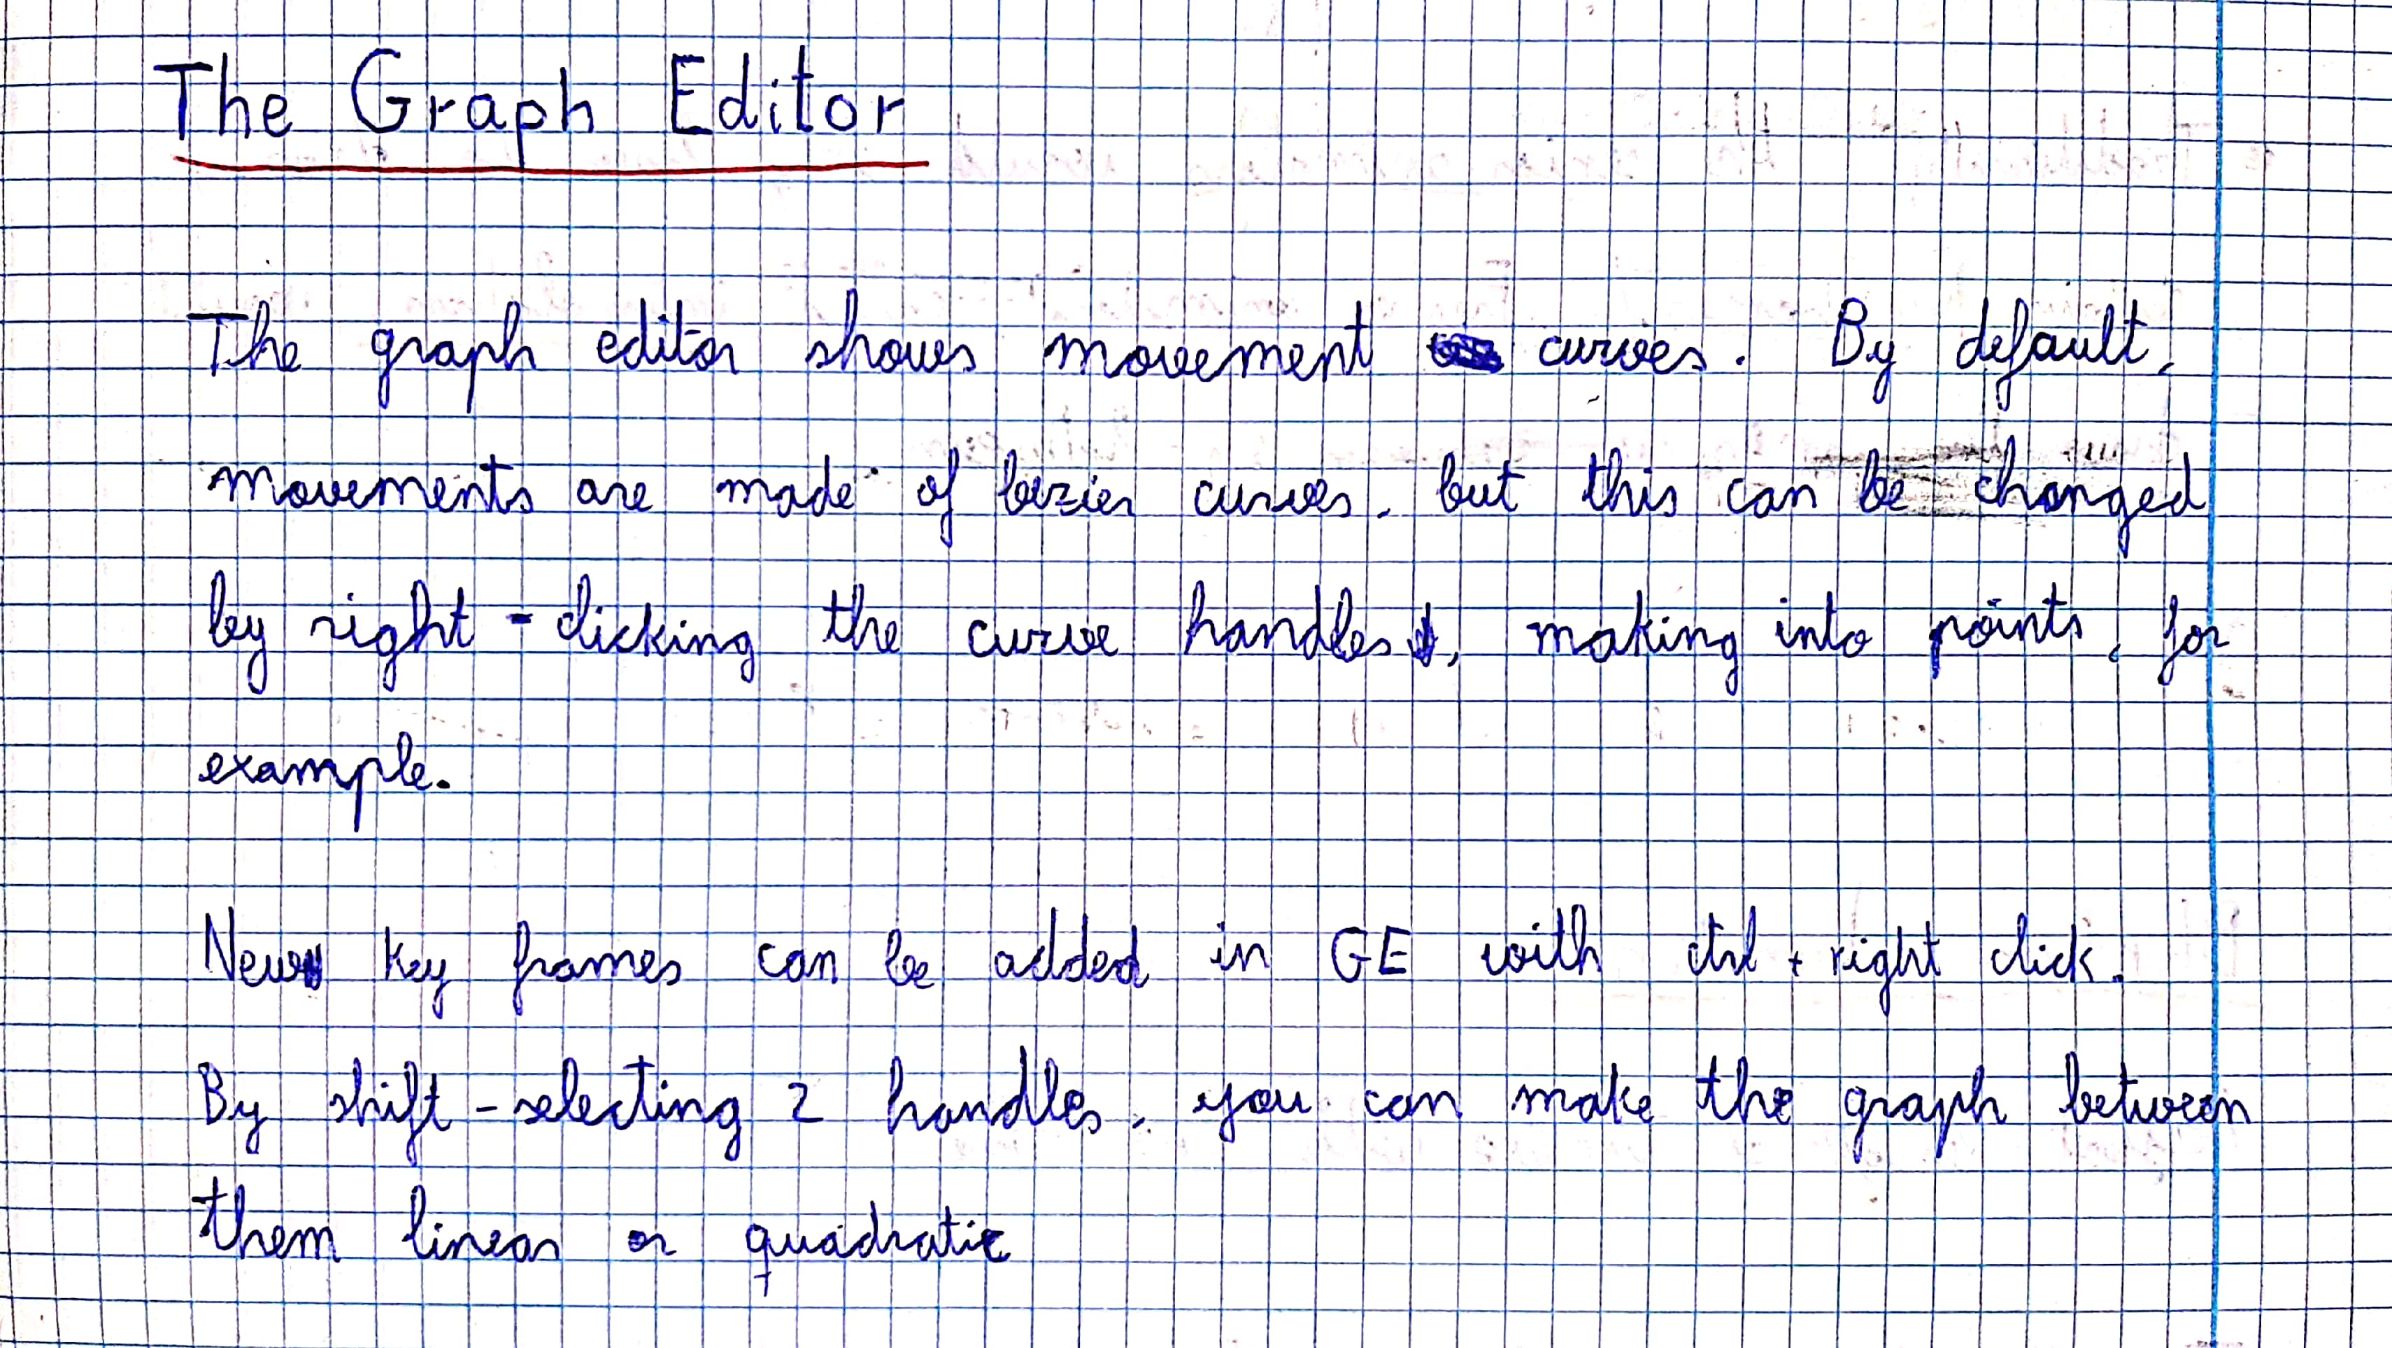 The Graph Editor
The graph editor shows movement curves. By default,
movements are made of bezier curves, but this can be changed
by right-clicking the curve handles, making into points, for
example.
New key frames can be added in GE with ctrl + right click.
By shift-selecting 2 handles, you can make the graph between
them linear or quadratic